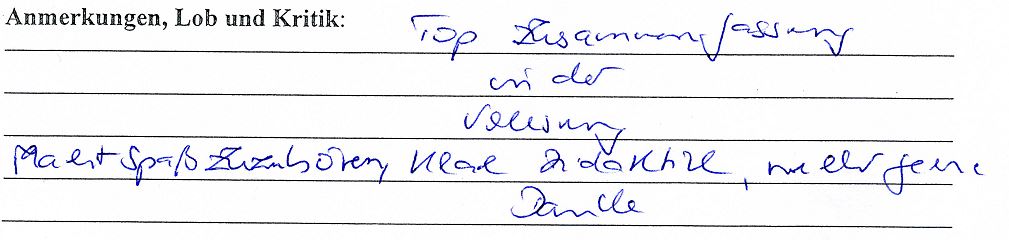 Anmerkungen, Lob und Kritik: Top Zusammenfassung
in der
Vorlesung
Macht Spaß zuzuhören, klare Didaktik, weiter gerne
Danke